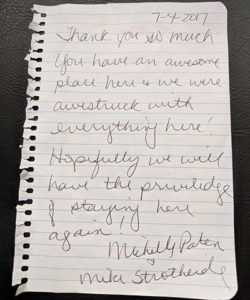 7-4-2017
Thank you so much
You have an awesome
place here & we were
awestruck with
everything here!
Hopefully we will
have the priviledge
of staying here
again!
Michelle Paten
&
Mike Strotheide